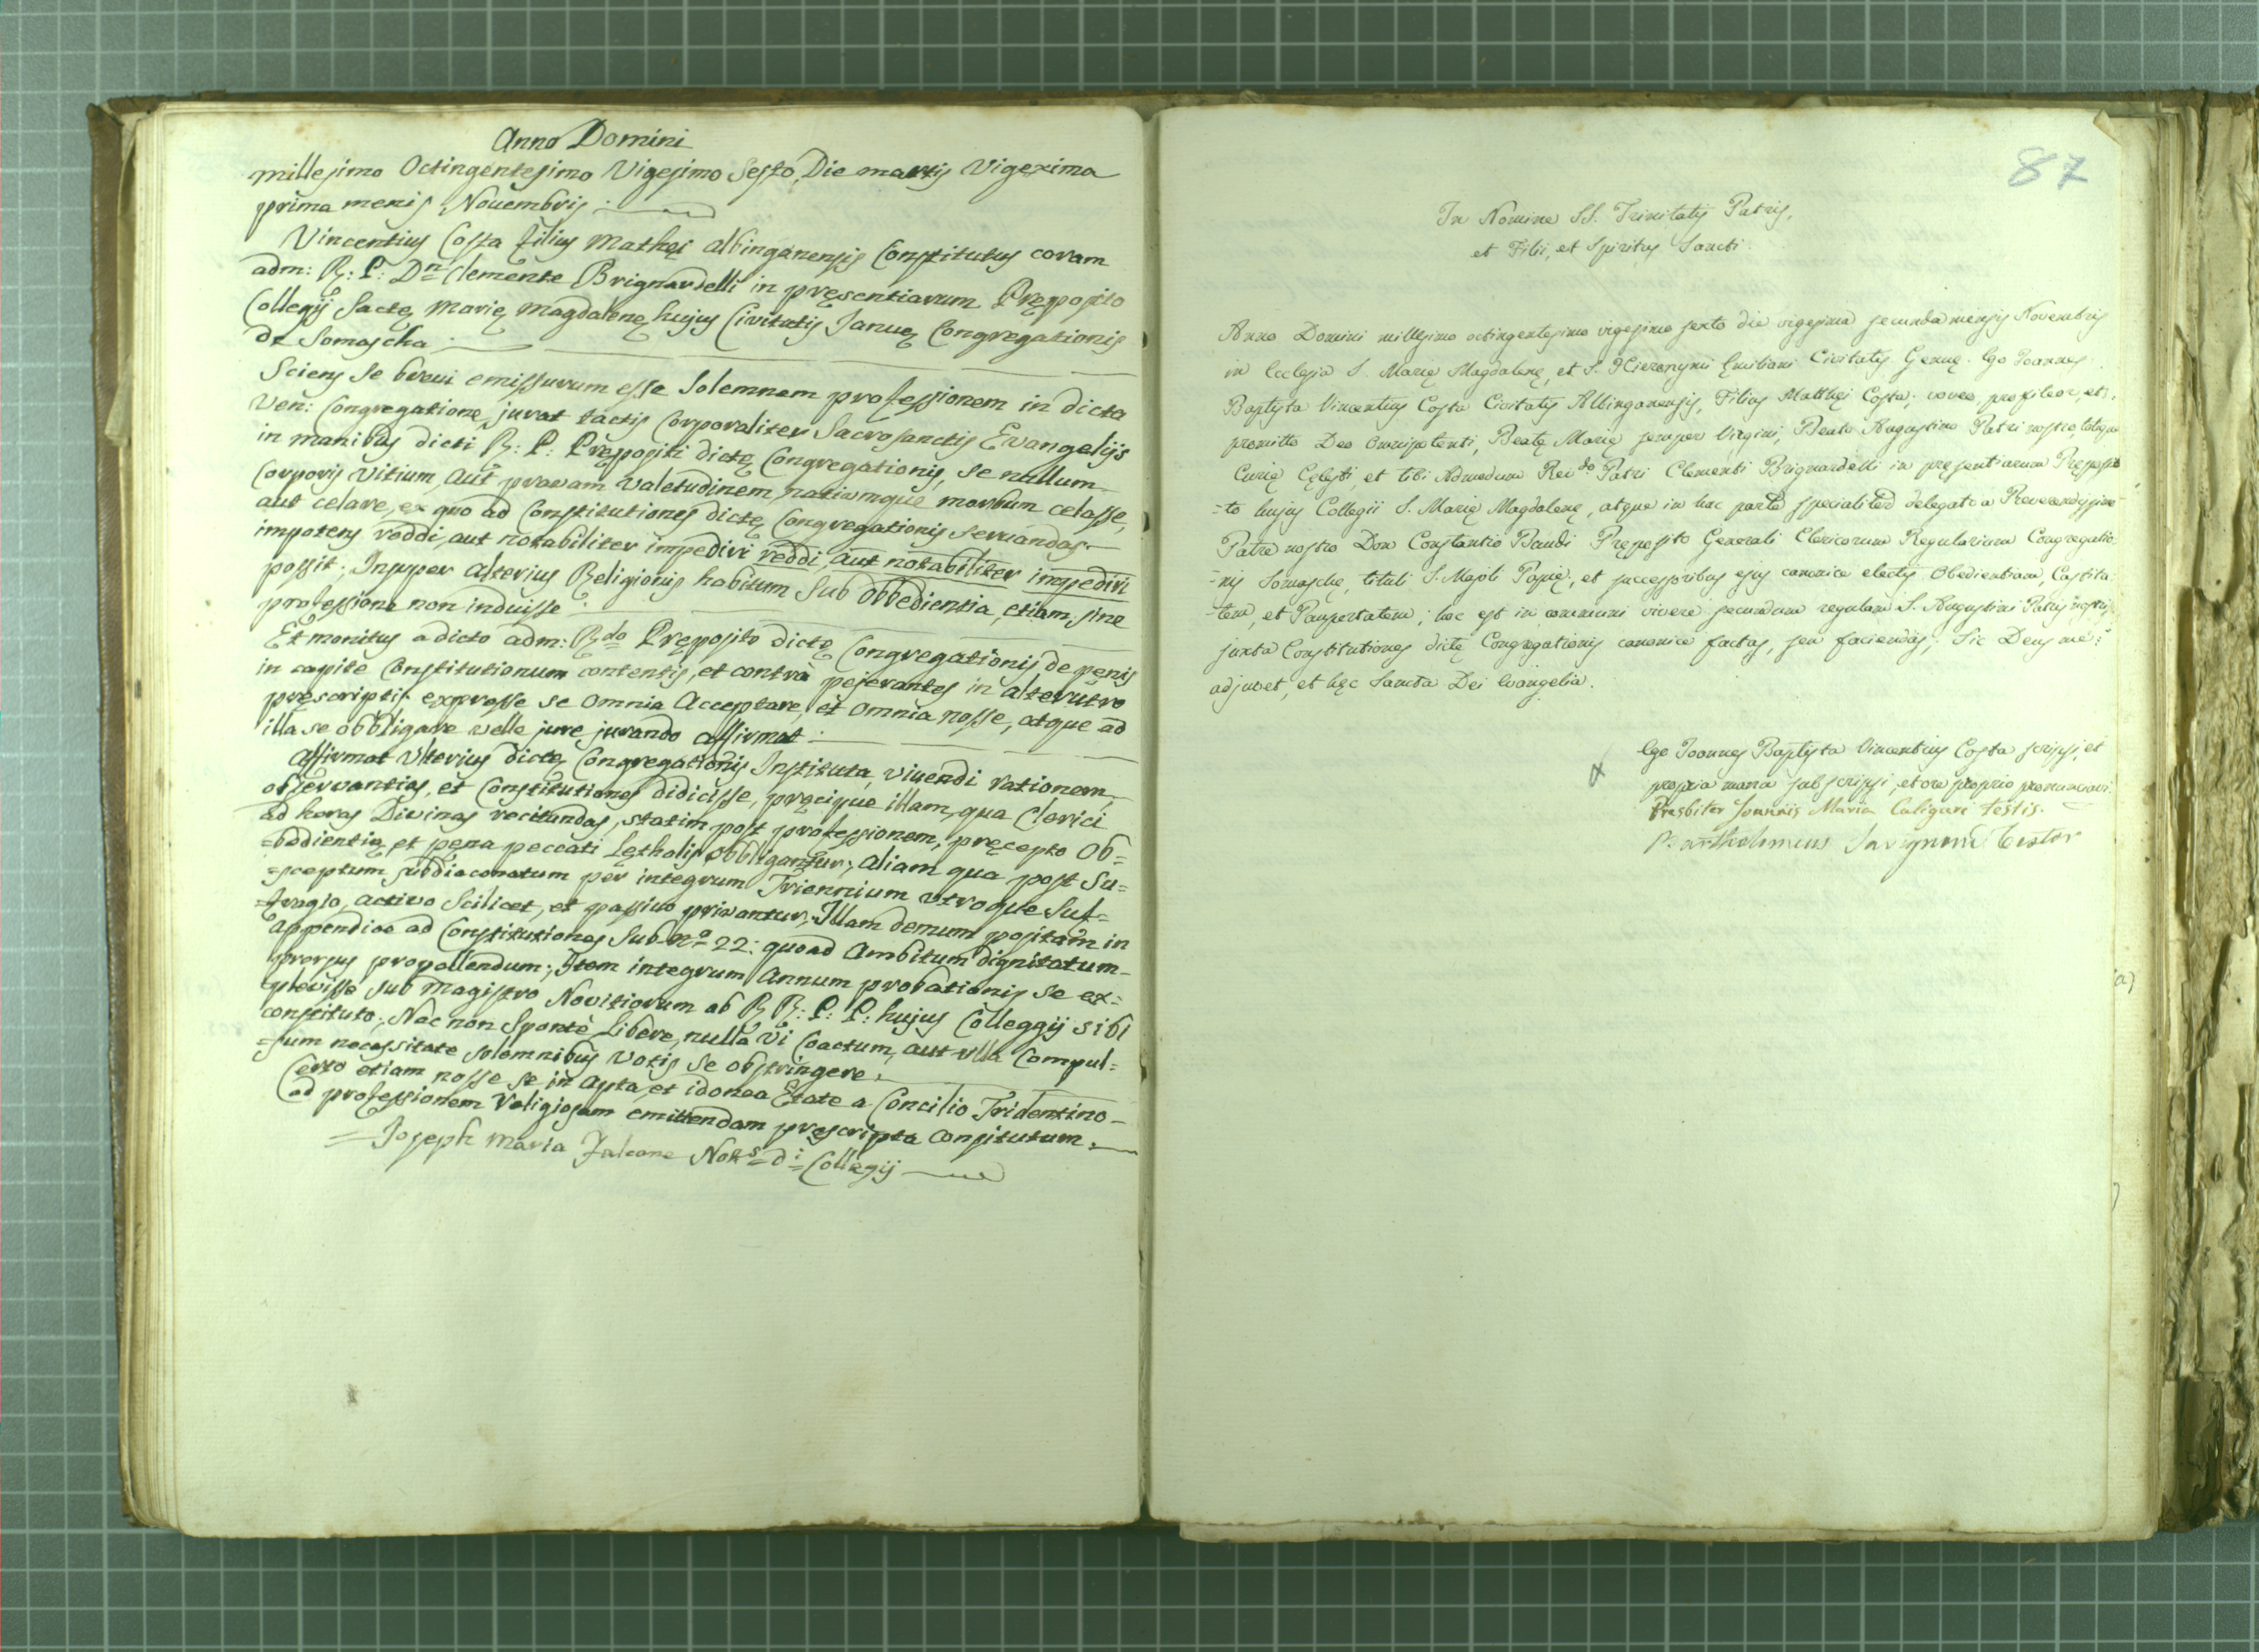 Anno Domini
millesimo Octingentesimo Vigesimo Sesto, Die martis Vigexima
prima mensis Novembris
Vincentius Costa filius Mathęi Albinganensis Constitutus coram
adm: R: P: Dn Clemente Brignardelli in pręsentiarum Pręposito
Collegij Sactę Marię Magdalenę hujus Civitatis Januę Congregationis
de Somascha
Sciens se brevi emissurum esse Solemnem professionem in dicta
Ven: Congregatione, jurat tactis Corporaliter Sacrosanctis Evangelijs
in manibus dicti R: P: Prępositi dictę Congregationis, se nullum
Corporis Vitium, aut pravam Valetudinem, nativmque morbum celasse,
aut celare, ex quo ad Constitutiones dictę Congregationis servandas
impotens reddi, aut notabiliter impediri reddi, aut notabiliter impediri
possit; Insuper alterius Religionis habitum sub obbedientia, etiam sine
professione non induisse
Et monitus a dicto adm: Rdo Pręposito dictę Congregationis de penis
in capite Constitutionum contentis, et contrà pejerantes in alterutro
pręscriptis, expresse se omnia Acceptare, et omnia nosse, atque ad
illa se obbligare velle jure jurando affirmat
Affirmat Ulterius dictę Congregationis Instituta, vivendi rationem,
observantias, et Constitutiones didicisse, pręcipue illam, qua Clerici
ad horas Divinas recitandas, statim post professionem, pręcepto Ob=
=bedientię et pęna peccati Lęthalis obbligantur; aliam qua post Su=
=sceptum subdiaconatum per integrum Triennium utroque Suf=
=fragio, activo Scilicet, et passivo privantur; Illam demum positam in
appendice ad Constitutiones Sub no 22: quoad Ambitum dignitatum
prorsus propellendum; Item integrum Annum probationis se ex=
plevisse sub Magistro Novitiorum ab RR: P: P: hujus Colleggij sibi
constituto; Nec non Spontè Libere, nulla Vi Coactum, aut ulla Compul=
=sum necessitate solemnibus Votis se obstringere.
Certo etiam nosse se in Apta, et idonea Etate a Concilio Tridentino
ad professionem Religiosam emittendam pręscripta constitutum.
= Joseph Maria Falcone Nots di Collegij
87
In Nomine SS. Trinitatis Patris,
et Filii, et Spiritus Sancti.
Anno Domini millesimo octingentesimo vigesimo sexto die vigesima secunda mensis Novembris
in Ecclesia S. Marię Magdalenę, et S. Hieronymi Ęmiliani Civitatis Genuę. Ego Joannes
Baptista Vincentius Costa Civitatis Albinganensis, Filius Matthęi Costa; voveo, profiteor, et
promitto Deo Omnipotenti, Beatę Marię semper Virgini, Beato Augustino Patri nostro, totique
Curię Cęlesti, et tibi Admodum Revdo Patri Clementi Brignardelli in pręsentiarum Pręposi
=to hujus Collegii S. Marię Magdalenę, atque in hac parte specialiter delegato a Reverendissimo
Patre nostro Don Constantio Baudi Pręposito Generali Clericorum Regularium Congregatio
=nis Somaschę, tituli S. Majoli Papię, et successoribus ejus canonice electis Obedientiam, Castita
=tem, et Paupertatem; hoc est in communi vivere secundum regulam S. Augustini Patris nostri,
juxta Constitutiones dictę Congregationis canonice factas, seu faciendas; Sic Deus me
adjuvet, et hęc Sancta Dei Evangelia.
Ego Joannes Baptista Vincentius Costa scripsi, et
propria manu subscripsi, et ore proprio pronunciavi.
Presbiter Joannis Maria Caligari testis.
Bartholomeus Savignone Testor